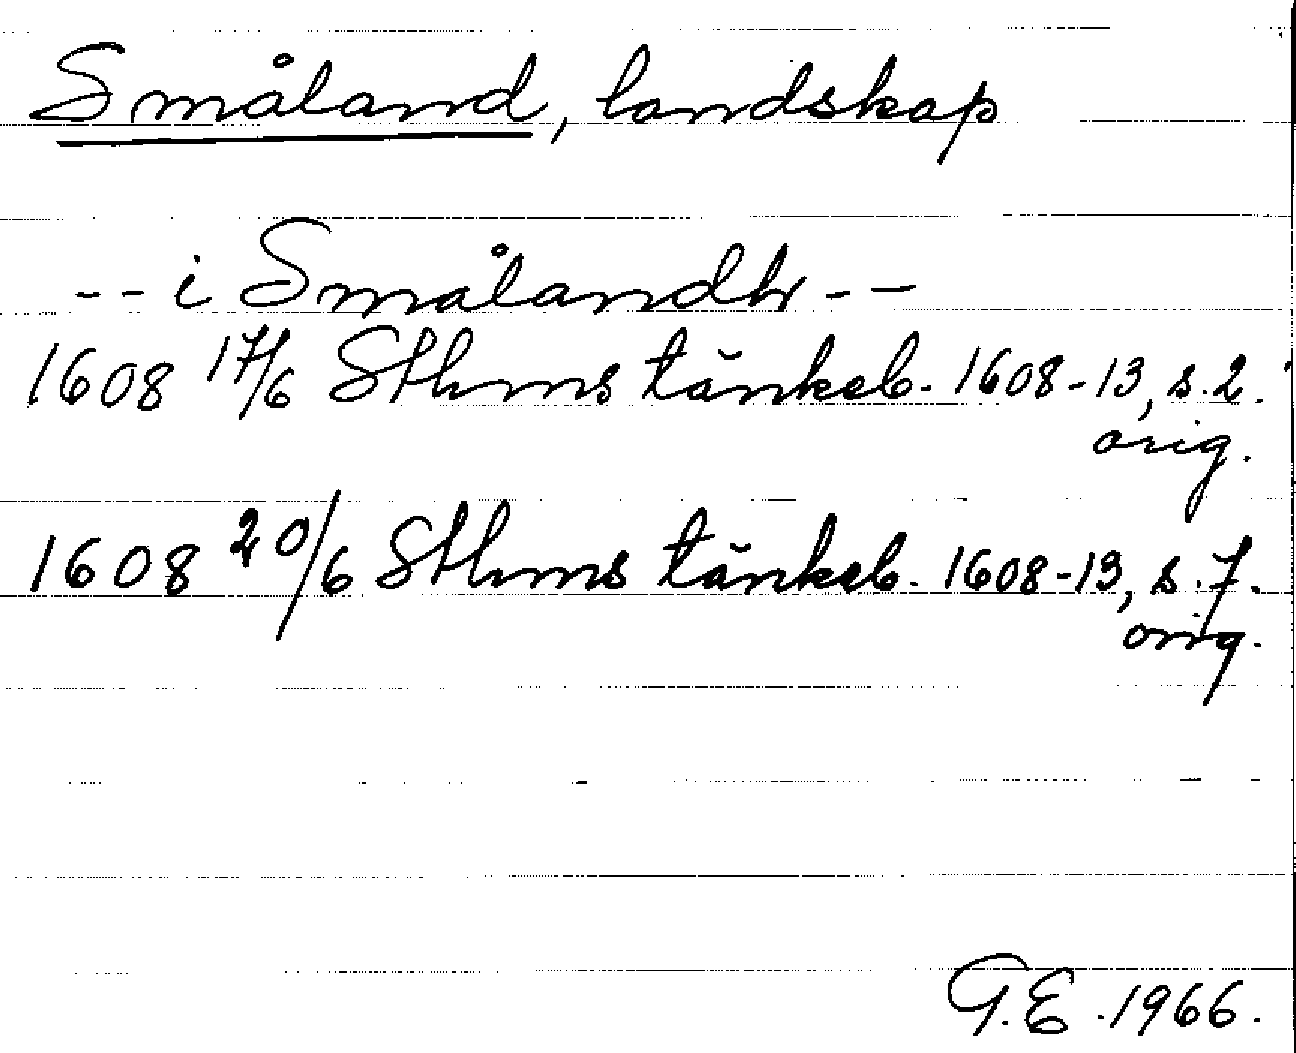 Småland, landskap
-- i Smålandh --
1608 17/6 Sthms tänkeb. 1608-13, s. 2.
orig.
1608 20/6 Sthms tänkeb. 1608-13, s. 7.
orig.
G.E. 1966.